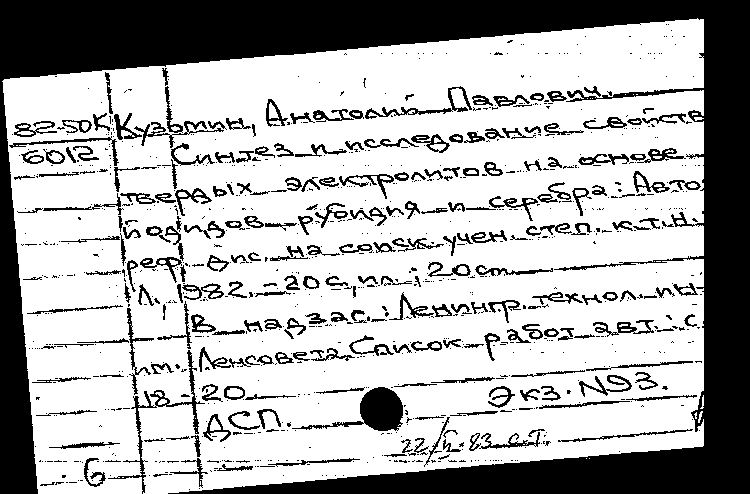 82-50К Кузьмин, Анатолий Павлович.
6012 Синтез и исследование свойств
твердых электролитов на основе
йодидов рубидия и серебра: Авто-
реф. дис. на соиск. учен. степ. к.т.н. -
Л., 1982. - 20 с., ил.; 20 см.
В надзаг.: Ленингр. технол. ин-
им. Ленсовета. Список работ авт.: с.
18-20.
ДСП. Экз. №93.
22/II-83 с.т.
6